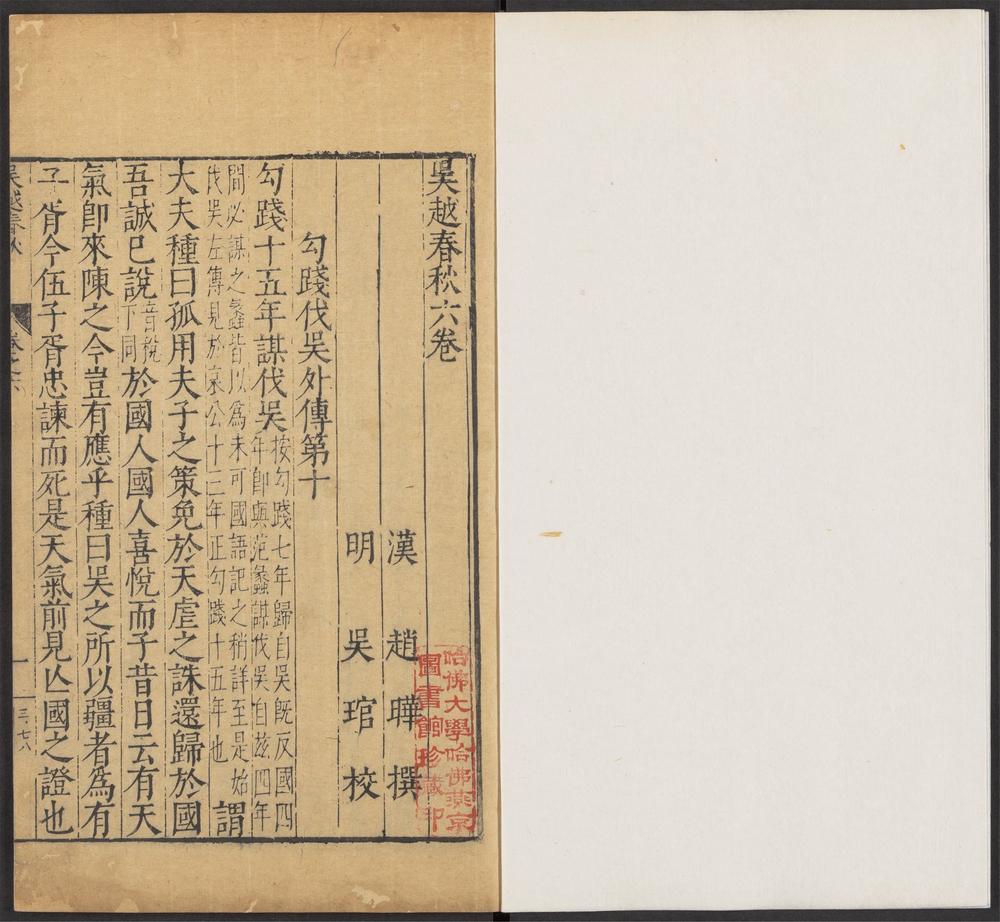 吳越春秋六卷
漢 趙曄撰
明 吳琯校
勾踐伐吳外傳第十
勾踐十五年謀伐吳
按勾踐七年歸自吳既反國四
年卽與范蠡謀伐吳自兹四年
間必謀之蠡皆以爲未可國語記之稍詳至是始
伐吳左傳見於哀公十三年正勾踐十五年也
謂
大夫種曰孤用夫子之策免於天虐之誅還歸於國
吾誠已說音稅下同於國人國人喜悅而子昔日云有天
氣卽來陳之今豈有應乎種曰吳之所以疆者爲有
子胥今伍子胥忠諫而死是天氣前見亾國之證也
吳越春秋
卷之六
一
三七八
哈佛大學哈佛燕京
圖書館珍藏印